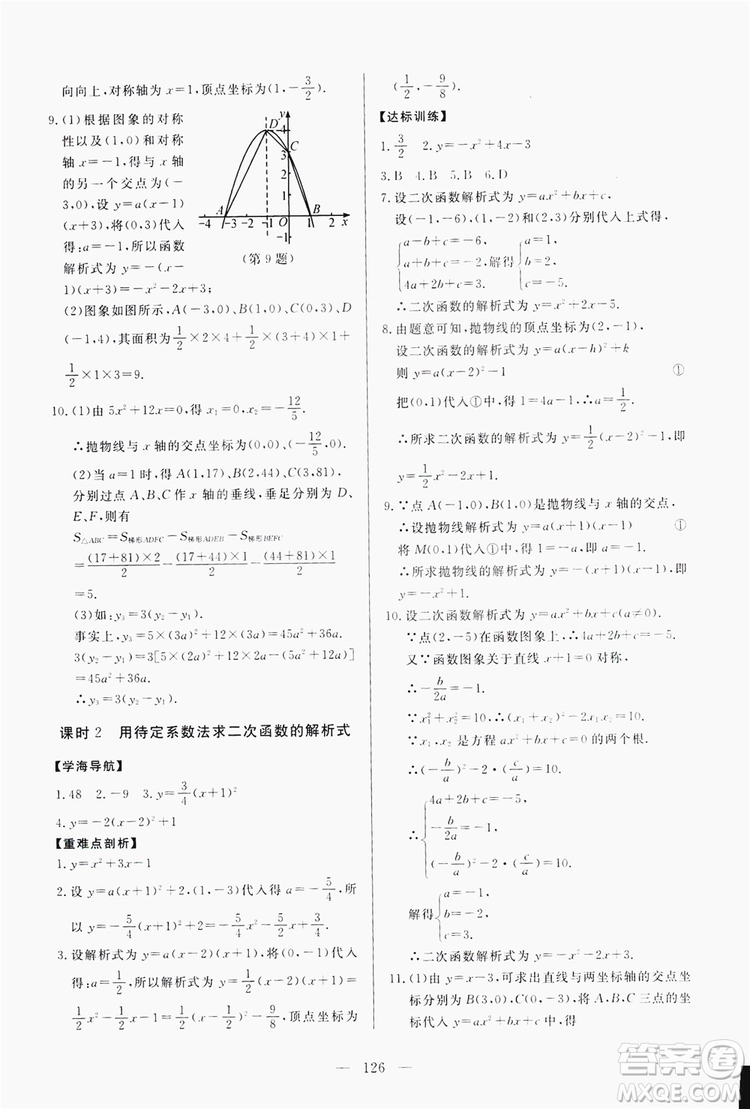 向向上,对称轴为 x=1,顶点坐标为(1,-3/2)
9.(1)根据图象的对称
性以及(1,0)和对称
轴 x=-1,与 x 轴的
另一个交点为(-
3,0),设 y=a(x-1)
(x+3),将(0,3)代入
得:a=-1,所以函数
解析式为 y=-(x-
1)(x+3)
y
D 4
C
3
2
1
A B
-4 -3 -2 -1 0 1 2 x
-1
(第 9 题)
(2)图象如图所示,A(-3,0),B(1,0),C(0,3),D(-1,
4),其面积为1/2×2×4+1/2×(3+4)×1+
1/2×1×3=9.
10.(1)由 5x²+12x=0,得 x₁=0,x₂=-12/5.
∴抛物线与 x 轴的交点坐标为(0,0)、(-12/5,0).
(2)当 a=1 时,得 A(1,17)、B(2,44)、C(3,81),
分别过点 A、B、C 作 x 轴的垂线,垂足分别为 D、
E、F,则有
S△ABC=S梯形ADFC-S梯形ADEB-S梯形BEFC
=(17+81)×2/2-(17+44)×1/2-(44+81)×1/2
=5.
(3)如:y₃=3(y₂-y₁).
事实上,y₃=5×(3a)²+12×(3a)=45a²+36a.
3(y₂-y₁)=3[5×(2a)²+12×2a-(5a²+12a)]
=45a²+36a.
∴y₃=3(y₂-y₁).
课时 2 用待定系数法求二次函数的解析式
【学海导航】
1.48 2.-9 3.y=3/4(x+1)²
4.y=-(x-2)²+1
【重难点剖析】
1.y=x²+3x-1
2.设 y=a(x+1)²+2,(1,-3)代入得 a=-5/4,所
以 y=-5/4(x+1)²+2=-5/4x²-5/2x+3/4
3.设解析式为 y=a(x-2)(x+1),将(1,-1)代入
得 a=1/2,所以解析式为 y=1/2(x-2)(x+1)=
1/2x²-1/2x-1=1/2(x-1/2)²-9/8,顶点坐标为
(1/2,-9/8).
【达标训练】
1.3/2 2.y=-x²+4x-3
3.B 4.B 5.B 6.D
7.设二次函数解析式为 y=ax²+bx+c,
设(-1,-6),(1,-2)和(2,3)分别代入上式得,
{a-b+c=-6,
a+b+c=-2,解得
4a+2b+c=3,
{a=1,
b=2,
c=-5.
∴二次函数的解析式为 y=x²+2x-5.
8.由题意可知,抛物线的顶点坐标为(2,-1).
设二次函数的解析式为 y=a(x-h)²+k
则 y=a(x-2)²-1 ①
把(0,1)代入①中,得 1=4a-1 ∴a=1/2.
∴所求二次函数的解析式为 y=1/2(x-2)²-1,即
y=1/2x²-2x+1.
9.∵点 A(-1,0),B(1,0)是抛物线与 x 轴的交点,
∴设抛物线解析式为 y=a(x+1)(x-1) ①
将 M(0,1)代入①中,得 1=-a,∴a=-1.
∴所求抛物线的解析式为 y=-(x+1)(x-1),即
y=-x²+1.
10.设二次函数解析式为 y=ax²+bx+c(a≠0).
∵点(2,-5)在函数图象上,∴4a+2b+c=-5.
又∵函数图象关于直线 x+1=0 对称,
∴-b/2a=-1.
∵x₁²+x₂²=10,∴(x₁+x₂)²-2x₁x₂=10.
∵x₁,x₂ 是方程 ax²+bx+c=0 的根,
∴(-b/a)²-2(c/a)=10.
∴{4a+2b+c=-5,
-b/2a=-1,
(-b/a)²-2(c/a)=10.
解得{a=-1,
b=-2,
c=3.
∴二次函数解析式为 y=-x²-2x+3.
11.(1)由 y=x-3,可求出直线与两坐标轴的交点坐
标分别为 B(3,0),C(0,-3),将 A、B、C 三点的坐
标代入 y=ax²+bx+c 中,得
— 126 —
答案圈